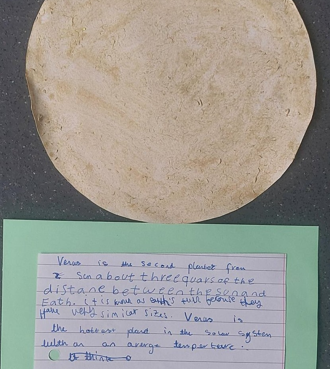 Venus is the second planet from
Sun about three quars of the
distane between the sun and
Eath. it is know as eath's twin because they
have very similar sizes. Venus is
the hottest planet in the solar system
with an an average temperture.